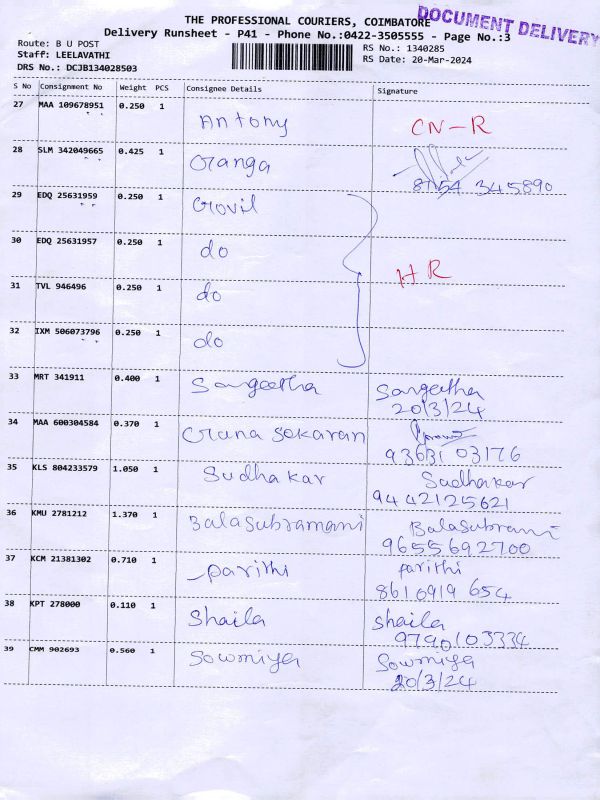 THE PROFESSIONAL COURIERS, COIMBATORE
DOCUMENT DELIVERY
Delivery Runsheet - P41 - Phone No.:0422-3505555 - Page No.:3
Route: B U POST
RS No.: 1340285
Staff: LEELAVATHI
RS Date: 20-Mar-2024
DRS No.: DCJB134028503
S No Consignment No Weight PCS Consignee Details Signature
27 MAA 109678951 0.250 1 Antony CN-R
28 SLM 342049665 0.425 1 Granga
8154 345890
29 EDQ 25631959 0.250 1 Govil
30 EDQ 25631957 0.250 1 do
HR
31 TVL 946496 0.250 1 do
32 IXM 506073796 0.250 1 do
33 MRT 341911 0.400 1 Sangeetha Sangeetha
20/3/24
34 MAA 600304584 0.370 1 Gana Sekaran
93631 03176
35 KLS 804233579 1.050 1 Sudhakar Sudhakar
9442125621
36 KMU 2781212 1.370 1 Balasubramani Balasubrani
9655692700
37 KCM 21381302 0.710 1 parithi parithi
8610919 654
38 KPT 278000 0.110 1 Shaila Shaila
9790103334
39 CMM 902693 0.560 1 Sowmiya Sowmiya
20/3/24